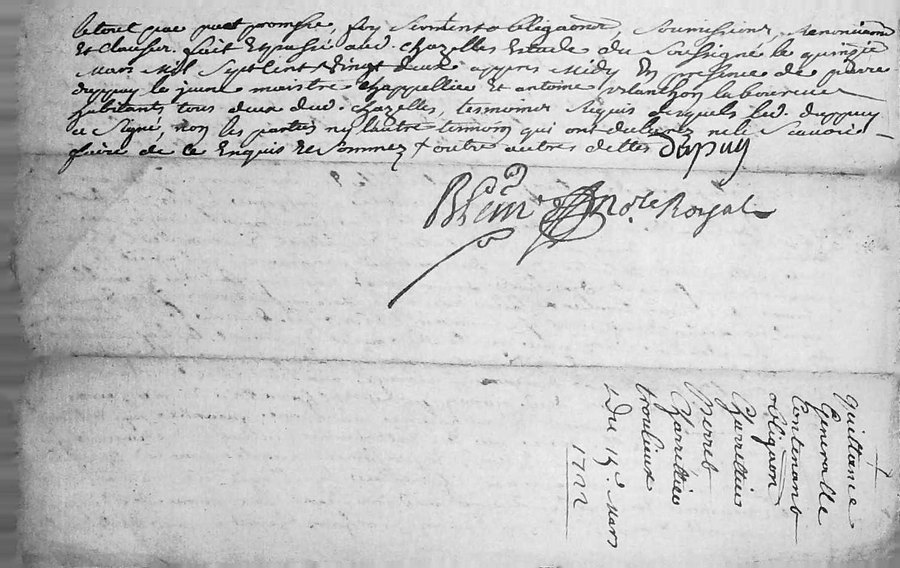 le tout par pact promesse, foy serment obligaons, soumissions, renonciaons
et clauses. fait et passé aud. chazelles estude du soussigné le quinzie
mars mil sept cent vingt deux appres midy en presence de pierre
duppuy le jeune maistre chappellier et antoine laboureur
habitants tous deux dud. chazelles, tesmoins requis desquels led. duppuy
a signé, non les parties ny lautre temoin qui ont declarez ne le scavoir
faire de ce enquis et sommez + outre autres dettes Dupuy
note Royal
quittance
Generalle
Contenant
obligaon
Charretier
Pierre
Charrettier
troulieux
Du 15e. Mars
1722